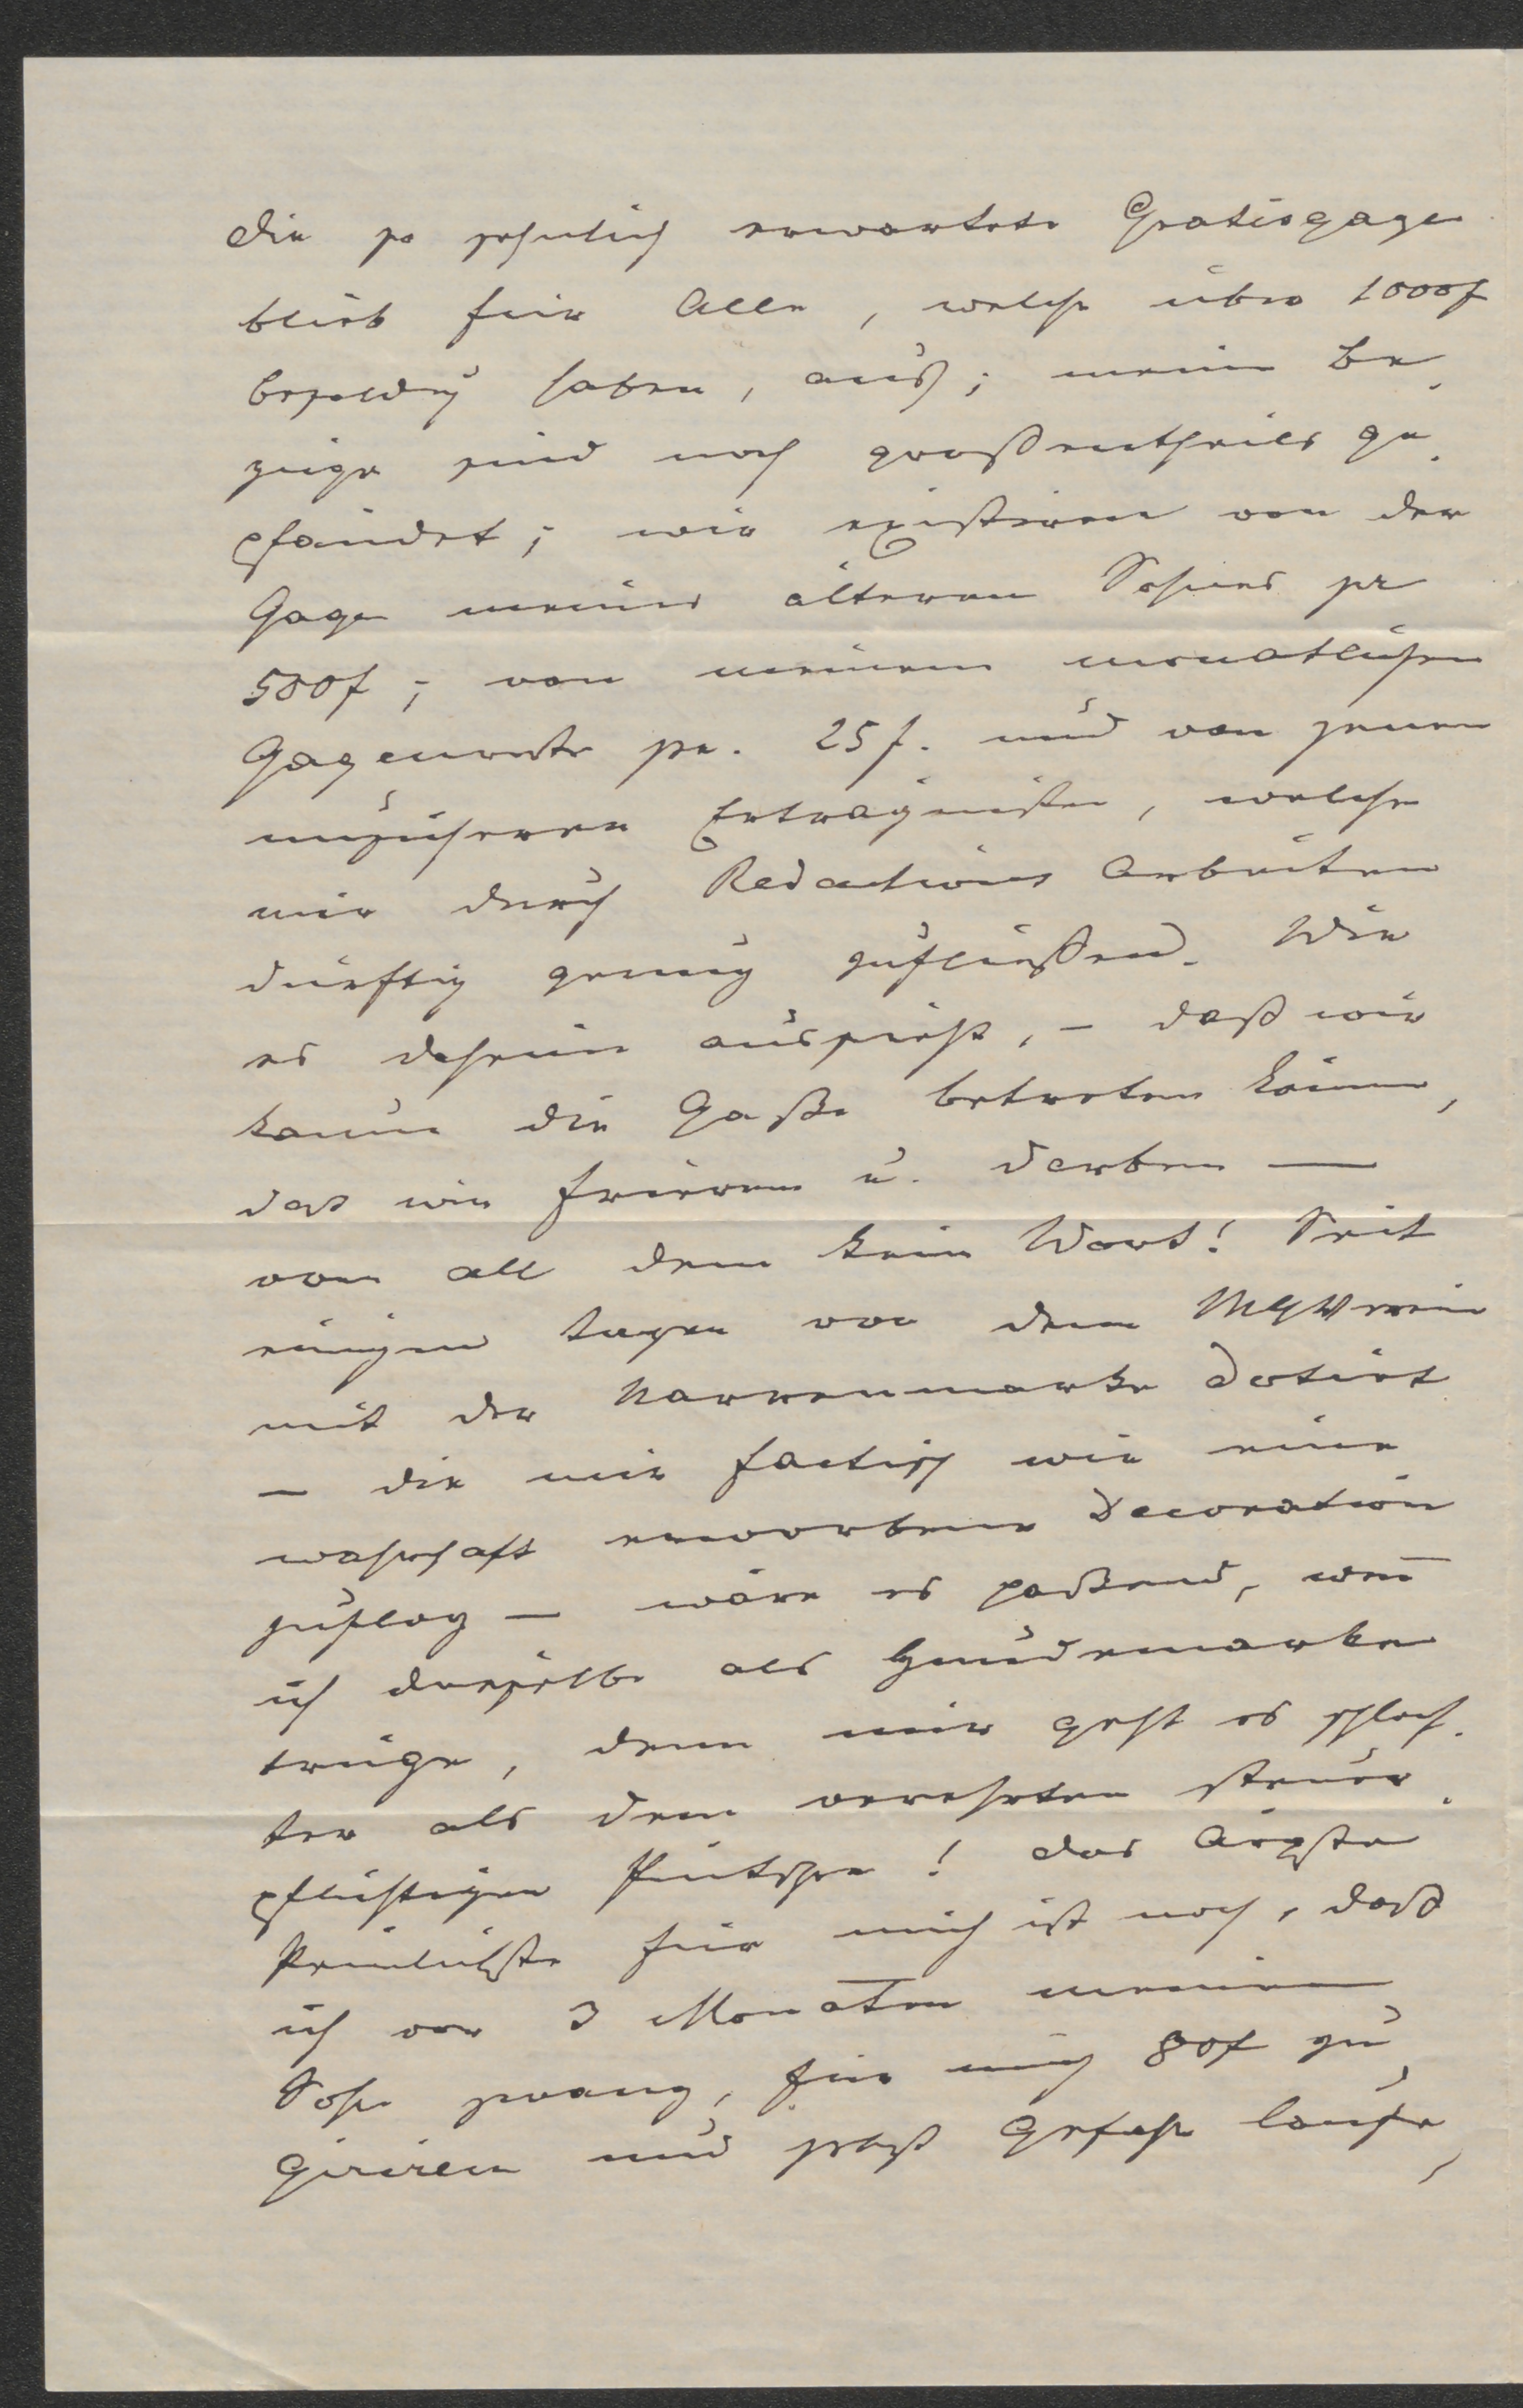 die so sehnlich erwartete Gratisgage
blieb für Alle, welche über 1000f
besoldg haben, aus; meine Be-
züge sind noch großentheils ge-
pfändet; wir existiren von der
Gage meines älteren Sohnes pr
500f; von meinem monatlichen
Gagenreste pr. 25f. und von jenen
unsicheren Erträgnißen, welche
mir durch Redactions Arbeiten
dürftig genug zufließen. Wie
es daheim aussieht, – daß wir
kaum die Gaße betreten können,
daß wir frieren u. darben —
von all dem kein Wort! Seit
einigen Tagen von dem MGVerein
mit der Narrenmarke dotirt
– die mir factisch wie eine
wahrhaft erworbene Decoration
zuflog – wäre es paßend, wen̅
ich dieselbe als Hundemarke
trüge, denn mir geht es schlech-
ter als dem verehrten steuer-
pflichtigen Pintscher! das Ärgste
Peinlichste für mich ist noch, daß
ich vor 3 Monaten meinen
Sohn zwang, für mich 80f zu
giriren und jetzt Gefahr laufe,